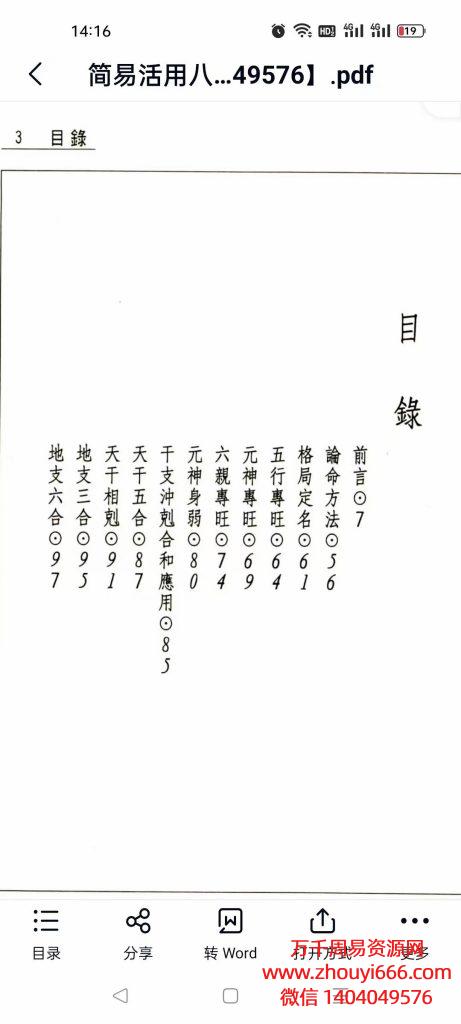 14:16
HD 4G 4G 19
简易活用八...49576】.pdf
3 目錄
目錄
前言⊙7
論命方法⊙56
格局定名⊙61
五行專旺⊙64
元神專旺⊙69
六親專旺⊙74
元神身弱⊙80
干支沖剋合和應用⊙85
天干五合⊙87
天干相剋⊙91
地支三合⊙95
地支六合⊙97
目录 分享 转 Word 打开方式 更多
万千周易资源网
www.zhouyi666.com
微信 1404049576